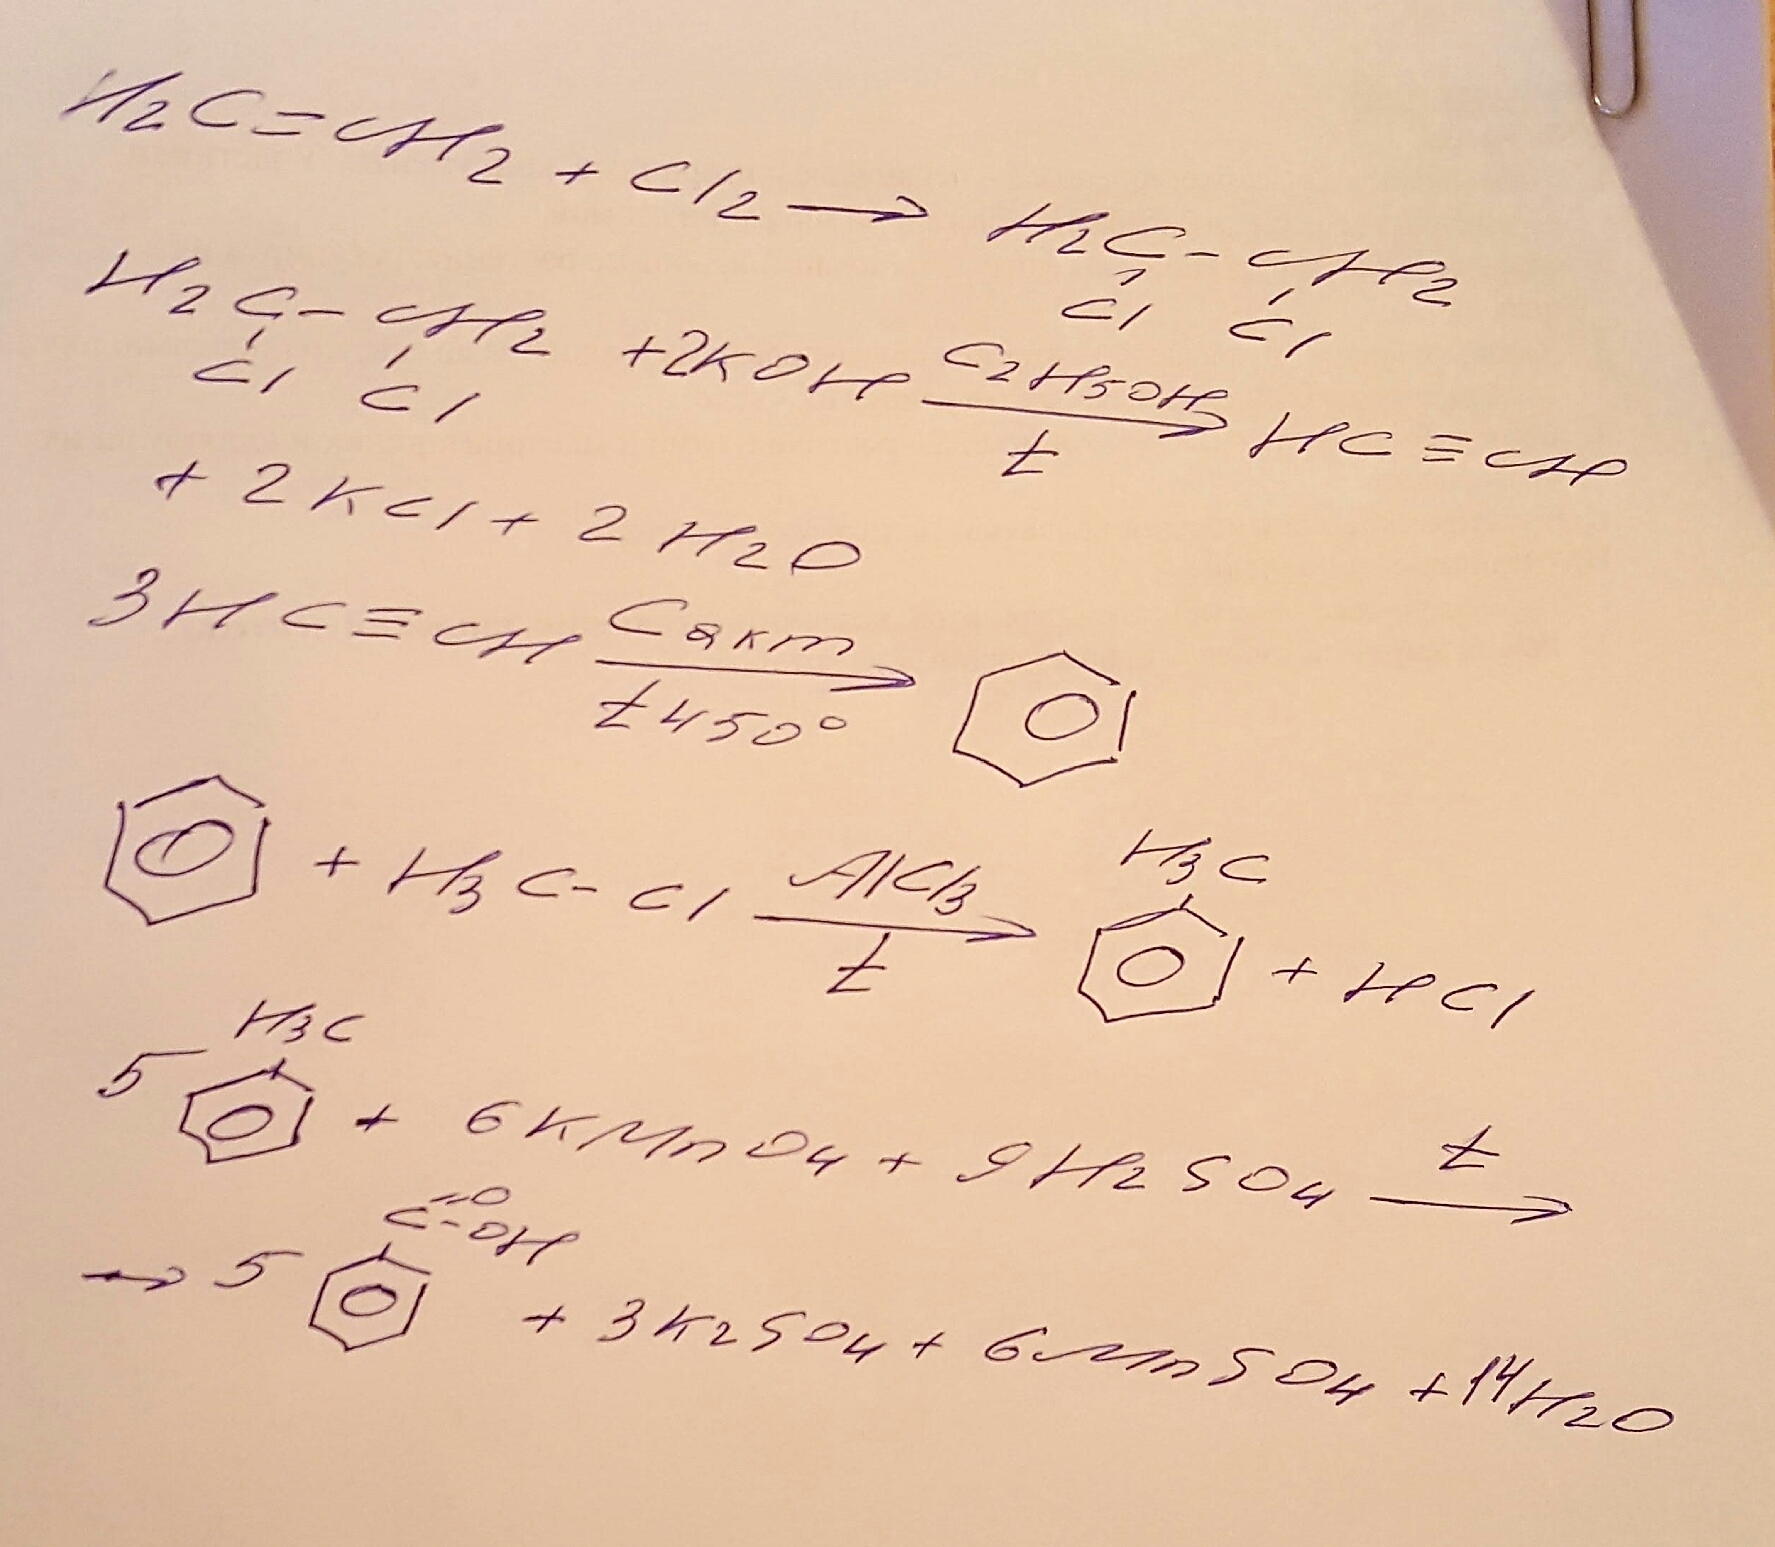 H2C=CH2 + Cl2 → H2C-CH2
Cl Cl
H2C-CH2 +2KOH C2H5OH → HC≡CH
Cl Cl t
+ 2KCl + 2H2O
3HC≡CH Cакт →
t 450°
+ H3C-Cl AlCl3 → H3C
t + HCl
H3C
5 + 6KMnO4 + 9H2SO4 t →
C=O
-OH
→ 5 + 3K2SO4 + 6MnSO4 + 14H2O